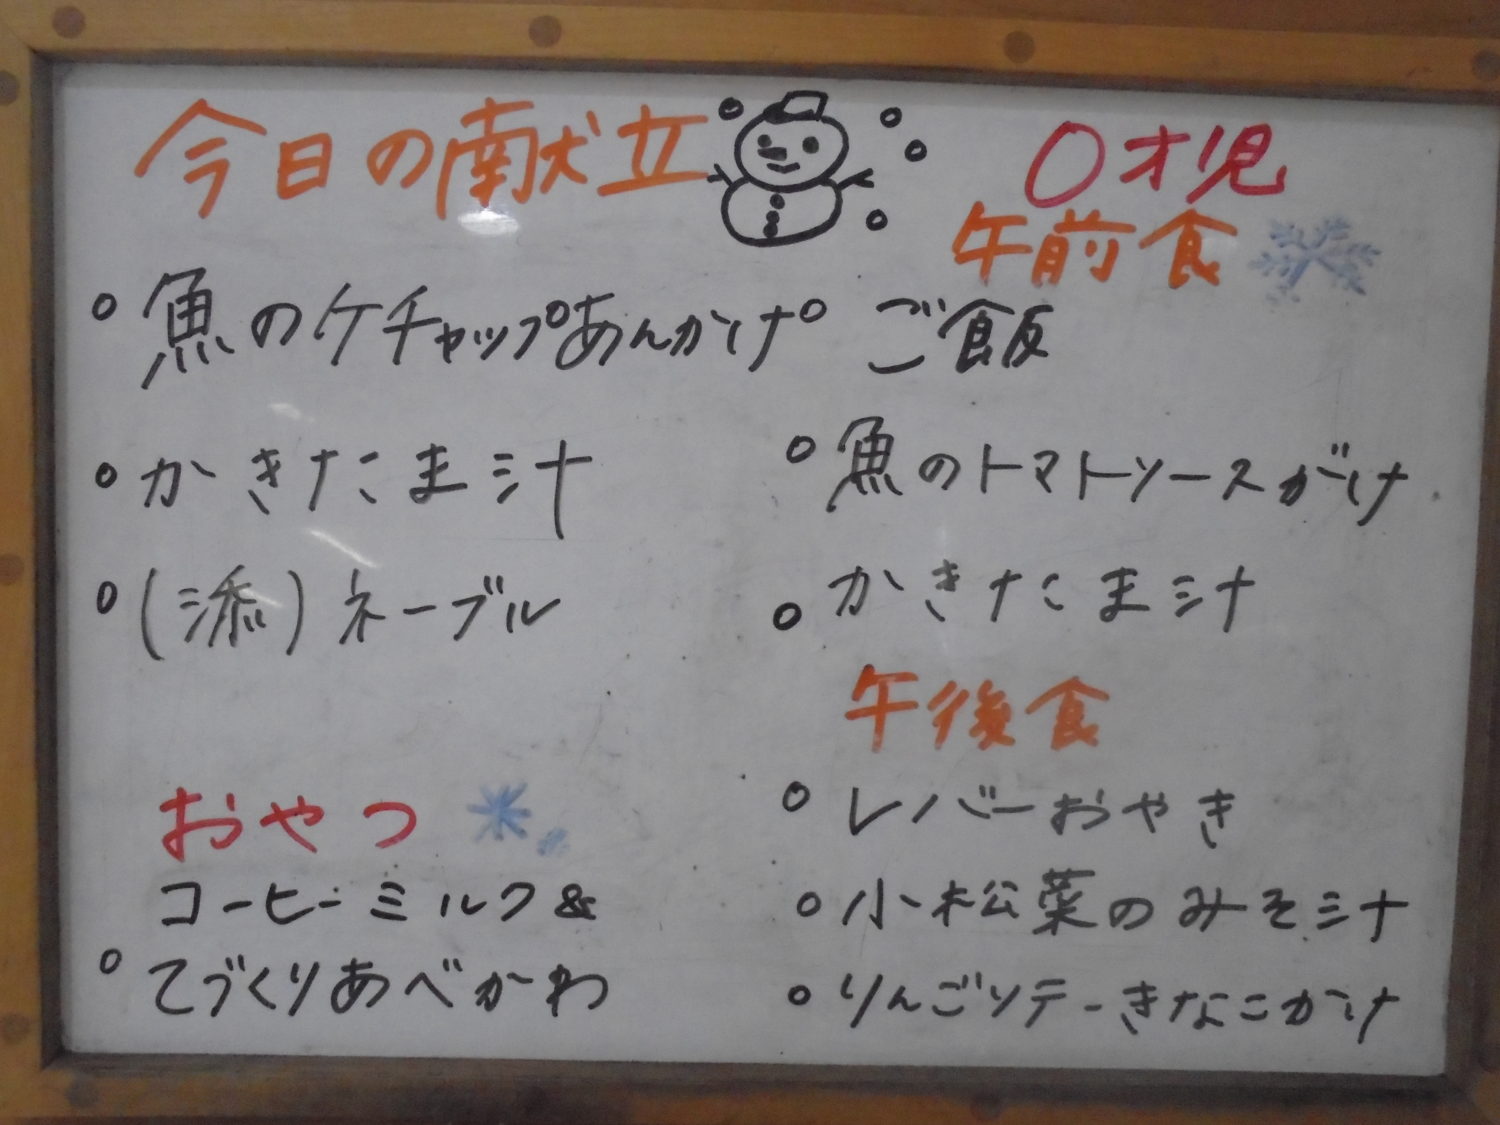 今日の献立
○魚のケチャップあんかけ
○かきたま汁
○(添)ネーブル
おやつ
コーヒーミルク&
○てづくりあべかわ
〇才児
午前食
○ご飯
○魚のトマトソースがけ
○かきたま汁
午後食
○レバーおやき
○小松菜のみそ汁
○りんごソテーきなこかけ